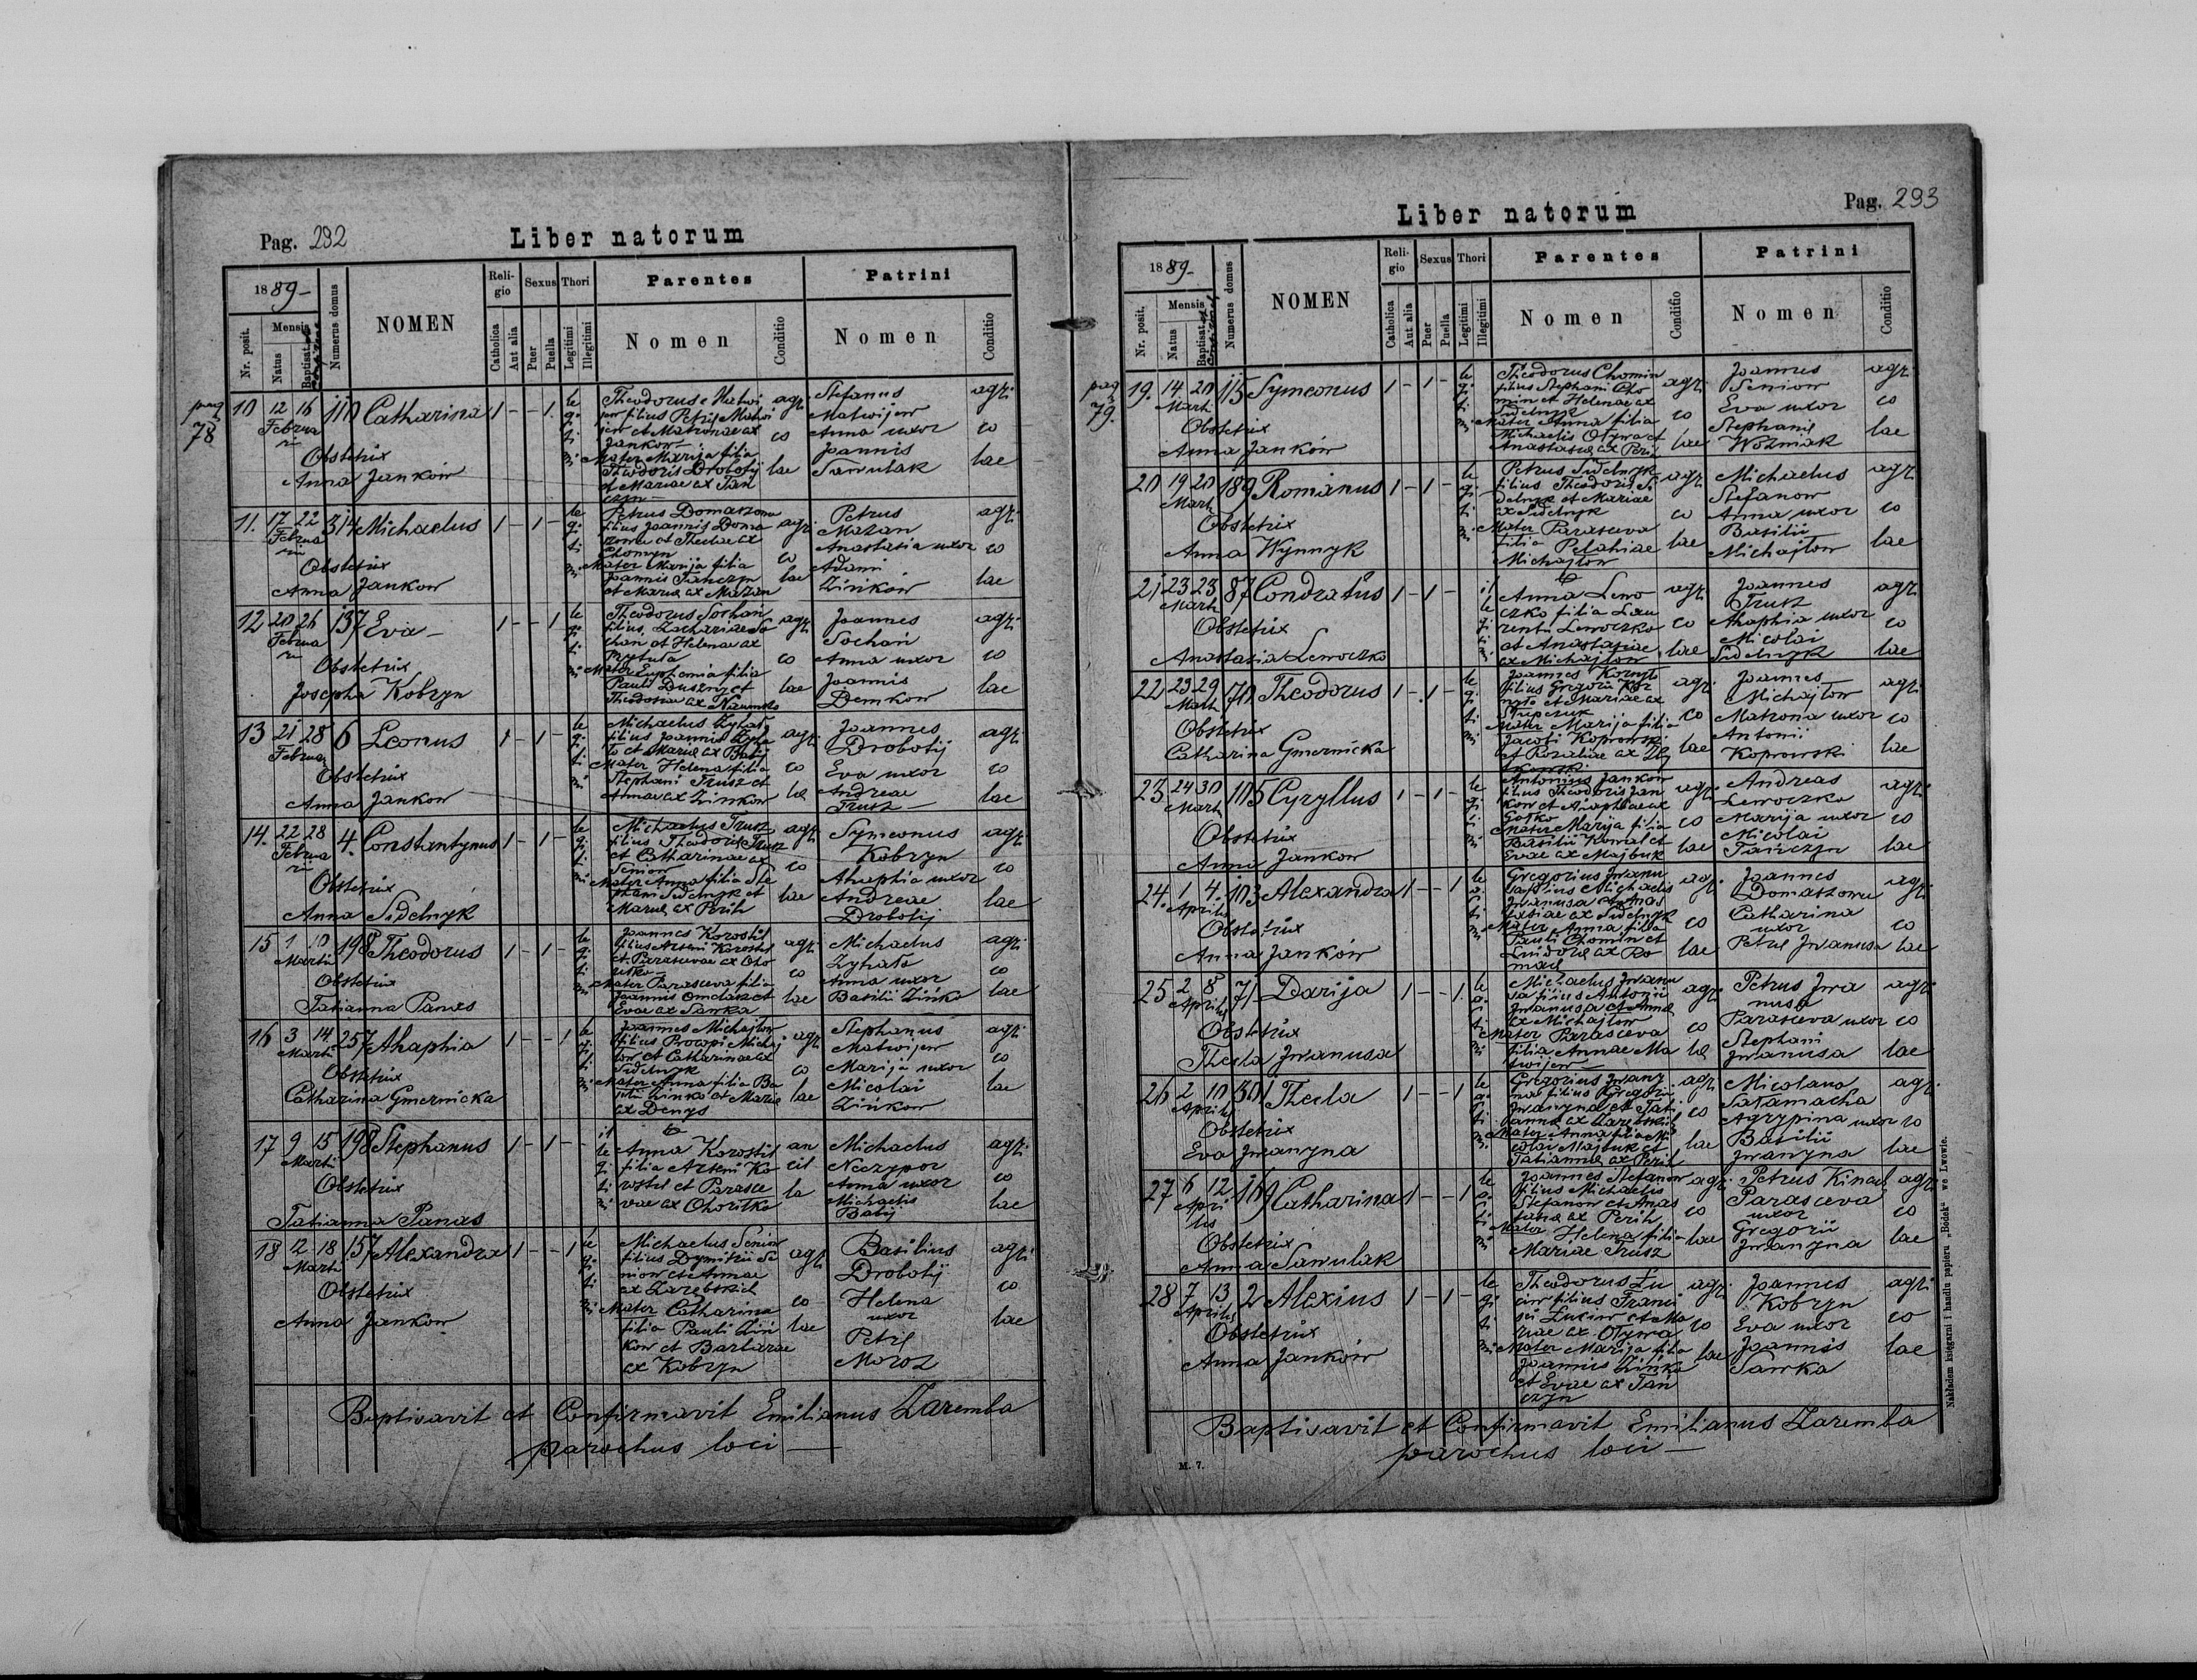 Pag. 292
Liber natorum
1889
Nr. posit.
Mensis
Natus
Baptisat.
Numerus domus
NOMEN
Religio
Catholica
Aut alia
Sexus
Puer
Puella
Thori
Legitimi
Illegitimi
Parentes
Nomen
Conditio
Patrini
Nomen
Conditio
pag
78
10 12 16 110 Catharina 1 - - 1
Februa
rii
Obstetrix
Anna Janków
legitimi
Theodorus Matwi
jew filius Petri Matwi
jew et Matronae ex
Jankow
Mater Marija filia
Theodoris Drobotij
et Mariae ex Tań
czyn
agricolae
Stefanus
Matwijew
Anna uxor
Joannis
Sawulak
agricolae
11. 17 22 314 Michaelus 1 - 1 -
Februa
rii
Obstetrix
Anna Jankow
legitimi
Petrus Domaszow
filius Joannis Doma
szowa et Theclae ex
Chomyn
Mater Marija filia
Joannis Tańczyn
et Mariae ex Mazan
agricolae
Petrus
Mazan
Anastasia uxor
Adami
Zińków
agricolae
12 20 26 137 Eva 1 - - 1
Februa
rii
Obstetrix
Josepha Kobryn
legitimi
Theodorus Sochań
filius Zachariae So
chan et Helenae ex
Mater Euphemia filia
Pauli Duszny et
Theodosiae ex Naumko
agricolae
Joannes
Sochań
Anna uxor
Joannis
Demkow
agricolae
13 21 28 6 Leonus 1 - 1 -
Februar
Obstetrix
Anna Jankow
legitimi
Michaelus Zyhał
filius Joannis Zyha
ło et Mariae ex Babij
Mater Helena filia
Stephani Trusz et
Annae ex Zinkow
agricolae
Joannes
Drobotij
Eva uxor
Andreae
Trusz
agricolae
14. 22 28 4. Constantynus 1 - 1 -
Februa
rii
Obstetrix
Anna Sidelnyk
legitimi
Michaelus Trusz
filius Theodoris Trusz
et Catharinae ex
Seniow
Mater Anna filia Ste
phani Sidelnyk et
Mariae ex Perih
agricolae
Symeonus
Kobryn
Ahaphia uxor
Andreae
Drobotij
agricolae
15 1 10 198 Theodorus 1 - 1 -
Martii
Obstetrix
Tatianna Panas
legitimi
Joannes Korostil
filius Arseni Korostil
et Parascevae ex Oho
ritko
Mater Parasceva filia
Joannis Omelasz et
Evae ex Sawka
agricolae
Michaelus
Zyhało
Anna uxor
Basilii Zińko
agricolae
16 3 14 257 Ahaphia 1 - - 1
Martii
Obstetrix
Catharina Gmernicka
legitimi
Joannes Michajłow
filius Procopi Michaj
łow et Catharinae ex
Sidelnyk
Mater Anna filia Ba
silii Zinko et Mariae
ex Denys
agricolae
Stephanus
Matwijew
Marija uxor
Nicolai
Zińkow
agricolae
17 9 15 198 Stephanus 1 - 1 -
Martii
Obstetrix
Tatianna Panas
illegitimi
Anna Korostil
filia Arseni Ko
rostil et Parasce
vae ex Ohoritko
ancilla
Michaelus
Neczypor
Anna uxor
Michaelis
Babij
agricolae
18 12 18 157 Alexandra 1 - - 1
Martii
Obstetrix
Anna Jankow
legitimi
Michaelus Seniow
filius Dymitrii Se
niow et Annae
ex Zarębskich
Mater Catharina
filia Pauli Ziń
kow et Barbarae
ex Kobryn
agricolae
Basilius
Drobotij
Helena
uxor
Petri
Moroz
agricolae
Baptisavit et Confirmavit Emilianus Zaremba
parochus loci
Pag. 293
Liber natorum
1889
Nr. posit.
Mensis
Natus
Baptisat.
Numerus domus
NOMEN
Religio
Catholica
Aut alia
Sexus
Puer
Puella
Thori
Legitimi
Illegitimi
Parentes
Nomen
Conditio
Patrini
Nomen
Conditio
pag
79.
19. 14 20 115 Symeonus 1 - 1 -
Marti
Obstetrix
Anna Janków
legitimi
Theodorus Chomin
filius Stephani Cho
min et Helenae ex
Sidelnyk
Mater Anna filia
Michaelis Otywa et
Anastasiae ex Perih
agricolae
Joannes
Seniow
Eva uxor
Stephani
Wozniak
agricolae
20 19 20 189 Romanus 1 - 1 -
Marti
Obstetrix
Anna Wynnyk
legitimi
Petrus Sidelnyk
filius Theodoris Si
delnyk et Mariae
ex Sidelnyk
Mater Parasceva
filia Pelahiae
Michajłow
agricolae
Michaelus
Stefanow
Anna uxor
Basilii
Michajłow
agricolae
21 23 23 87 Condratus 1 - 1 -
Marti
Obstetrix
Anastasia Lewoczko
illegitimi
Anna Lewo
czko filia Lau
rentii Lewoczko
et Anastasiae
ex Michajłow
agricolae
Joannes
Trusz
Ahaphia uxor
Nicolai
Sidelnyk
agricolae
22 23 29 70 Theodorus 1 - 1 -
Marti
Obstetrix
Catharina Gmernicka
legitimi
Joannes Kornyło
filius Gregorii Kor
nyło et Mariae ex
Mater Marija filia
Jacobi Koprowski
et Rozaliae ex
agricolae
Joannes
Michajłow
Matrona uxor
Antonii
Koprowski
agricolae
23 24 30 105 Cyryllus 1 - 1 -
Marti
Obstetrix
Anna Jankow
legitimi
Antonius Jankow
filius Theodoris Jan
kow et Ahaphiae ex
Gotko
Mater Marija filia
Basilii Kowal et
Evae ex Majbuk
agricolae
Andreas
Lewoczko
Marija uxor
Nicolai
Tańczyn
agricolae
24. 1 4. 103 Alexandra 1 - - 1
Aprilis
Obstetrix
Anna Janków
legitimi
Gregorius Jwanu
sa filius Michaelis
Jwanusa et Anas
tasiae ex Sidelnyk
Mater Anna filia
Pauli Chomin et
Isidorae ex Ro
mach
agricolae
Joannes
Domaszowa
Catharina
uxor
Petri Jwanusa
agricolae
25 2 8 71 Darija 1 - - 1.
Aprilis
Obstetrix
Thecla Jwanusa
legitimi
Michaelus Jwanu
sa filius Antonii
Jwanusa et Annae
ex Michajłow
Mater Parasceva
filia Annae Ma
twijew
agricolae
Petrus Jwa
nusa
Parasceva uxor
Stephani
Jwanusa
agricolae
26 2 10 301 Thecla 1 - - 1
Aprilis
Obstetrix
Eva Jwanyna
legitimi
Gregorius Jwany
na filius Gregorii
Jwanyna et Tati
annae ex Zarębskich
Mater Anna filia Ni
colai Majbuk et
Tatiannae ex Perih
agricolae
Nicolaus
Sałamacha
Agrypina uxor
Basilii
Jwanyna
agricolae
27 6 12 169 Catharina 1 - - 1
Apri
lis
Obstetrix
Anna Sawulak
legitimi
Joannes Stefanow
filius Michaelis
Stefanow et Anas
tasiae ex Perih
Mater Helena filia
Mariae Trusz
agricolae
Petrus Kinach
Parasceva
uxor
Gregorii
Jwanyna
agricolae
28 7 13 2 Alexius 1 - 1 -
Aprilis
Obstetrix
Anna Janków
legitimi
Theodorus Łu
ciw filius Franci
sci Łuciw et Ma
riae ex Otywa
Mater Marija filia
Joannis Zińko
et Evae ex Tań
czyn
agricolae
Joannes
Kobryn
Eva uxor
Joannis
Sawka
agricolae
Baptisavit et Confirmavit Emilianus Zaremba
parochus loci
M. 7.
Nakładem księgarni i handlu papieru „Bódek“ we Lwowie.